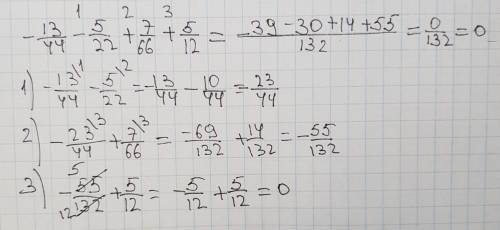 -13/44 - 5/22 + 7/66 + 5/12 = (-39 - 30 + 14 + 55)/132 = 0/132 = 0
1 2 3
1) -13\1/44 - 5\2/22 = -13/44 - 10/44 = -23/44
2) -23\3/44 + 7\3/66 = -69/132 + 14/132 = -55/132
3) -55/132 + 5/12 = -5/12 + 5/12 = 0
5
12